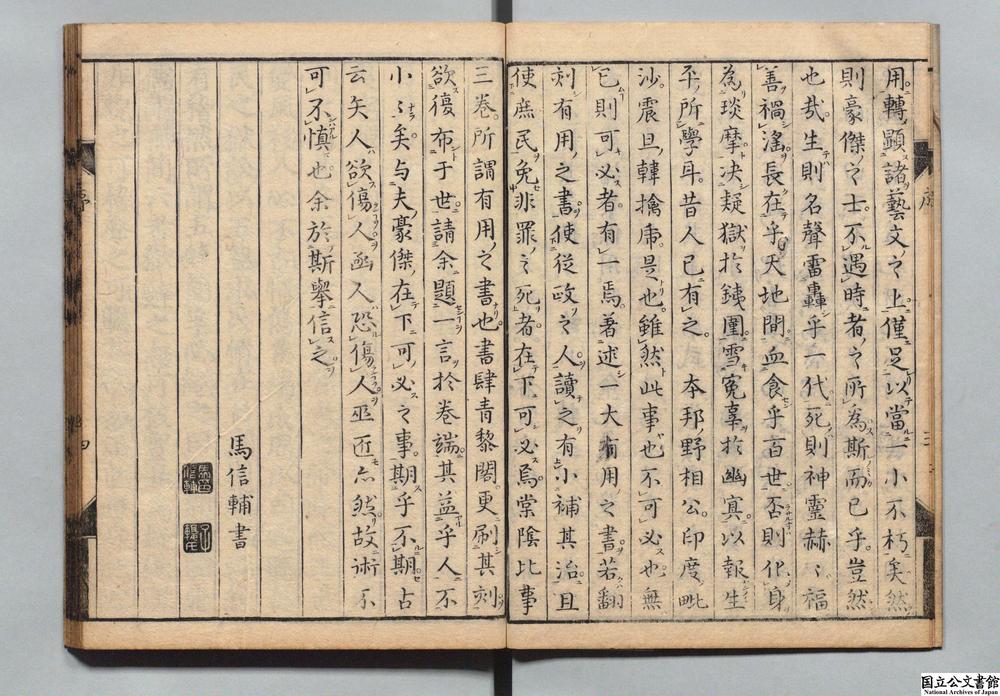 用轉顕諸藝文之上僅足以當一小不朽矣然
則豪傑之士不遇時者之所為斯而已乎豈然
也哉生則名聲雷轟乎一代死則神靈赫〻福
善禍淫長在乎天地間血食乎百世否則化身
為琰摩決疑獄於銕圍雪冤辜於幽冥以報生
平所學耳昔人已有之 本邦野相公印度毗
沙震旦韓擒虎是也雖然此事也不可必也無
已則可必者有一焉著述一大有用之書若翻
刻有用之書使從政之人讀之有小補其治且
使庶民免非罪之死者在下可必焉棠陰比事
三卷所謂有用之書也書肆青黎閣更刷其刻
欲復布于世請余題一言於卷端其益乎人不
小〻矣与夫豪傑在下可必之事期乎不期占
云矢人欲傷人函人恐傷人巫匠亦然故術不
可不慎也余於斯舉信之
馬信輔書
序
三
序
四
国立公文書館
National Archives of Japan